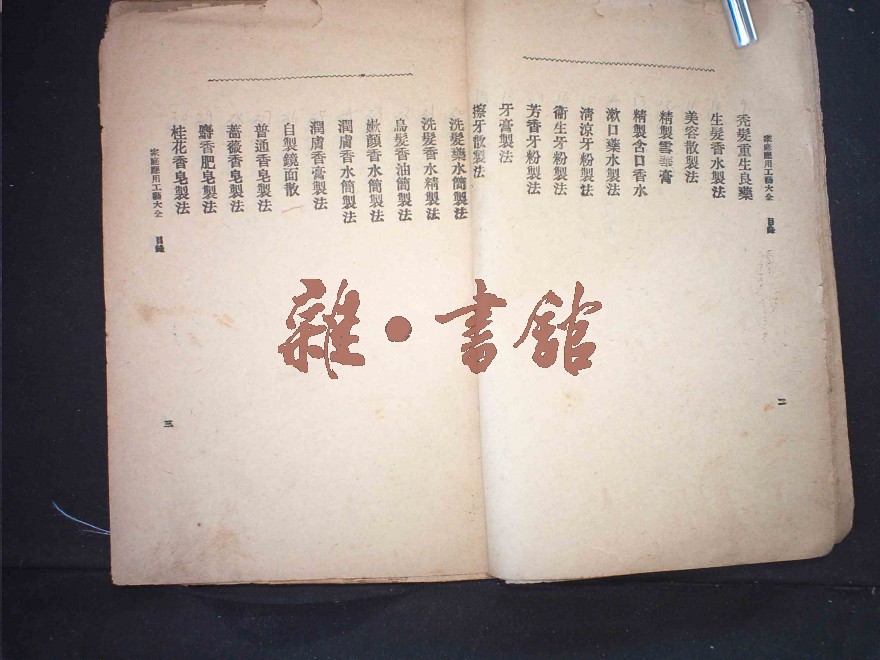 家庭應用工藝大全 目錄
二
禿髮重生良藥
生髮香水製法
美容散製法
精製雪華膏
精製含口香水
漱口藥水製法
清涼牙粉製法
衛生牙粉製法
芳香牙粉製法
牙膏製法
擦牙散製法
洗髮藥水簡製法
洗髮香水精製法
烏髮香油簡製法
嫩顏香水簡製法
潤膚香水簡製法
潤膚香膏製法
自製鏡面散
普通香皂製法
薔薇香皂製法
麝香肥皂製法
桂花香皂製法
家庭應用工藝大全 目錄
三
雜·書館